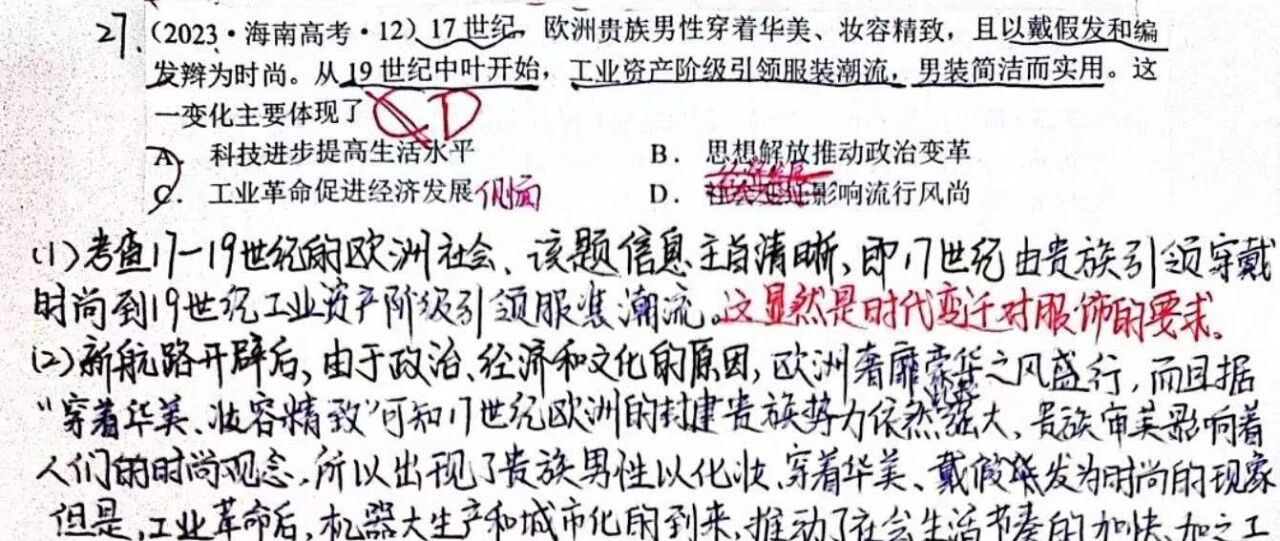 27.(2023·海南高考·12)17世纪,欧洲贵族男性穿着华美、妆容精致,且以戴假发和编
发辫为时尚。从19世纪中叶开始,工业资产阶级引领服装潮流,男装简洁而实用。这
一变化主要体现了 D
A. 科技进步提高生活水平 B. 思想解放推动政治变革
C. 工业革命促进经济发展 侧面 D. 社会变迁影响流行风尚
(1)考查17—19世纪的欧洲社会、该题信息主旨清晰,即17世纪由贵族引领穿戴
时尚到19世纪工业资产阶级引领服装潮流。这显然是时代变迁对服饰的要求。
(2)新航路开辟后,由于政治、经济和文化的原因,欧洲奢靡豪华之风盛行,而且据
“穿着华美、妆容精致”可知17世纪欧洲的封建贵族势力依然强大、贵族审美影响着
人们的时尚观念,所以出现了贵族男性以化妆、穿着华美、戴假发为时尚的现象
但是,工业革命后,机器大生产和城市化的到来,推动了社会生活节奏的加快、加之工